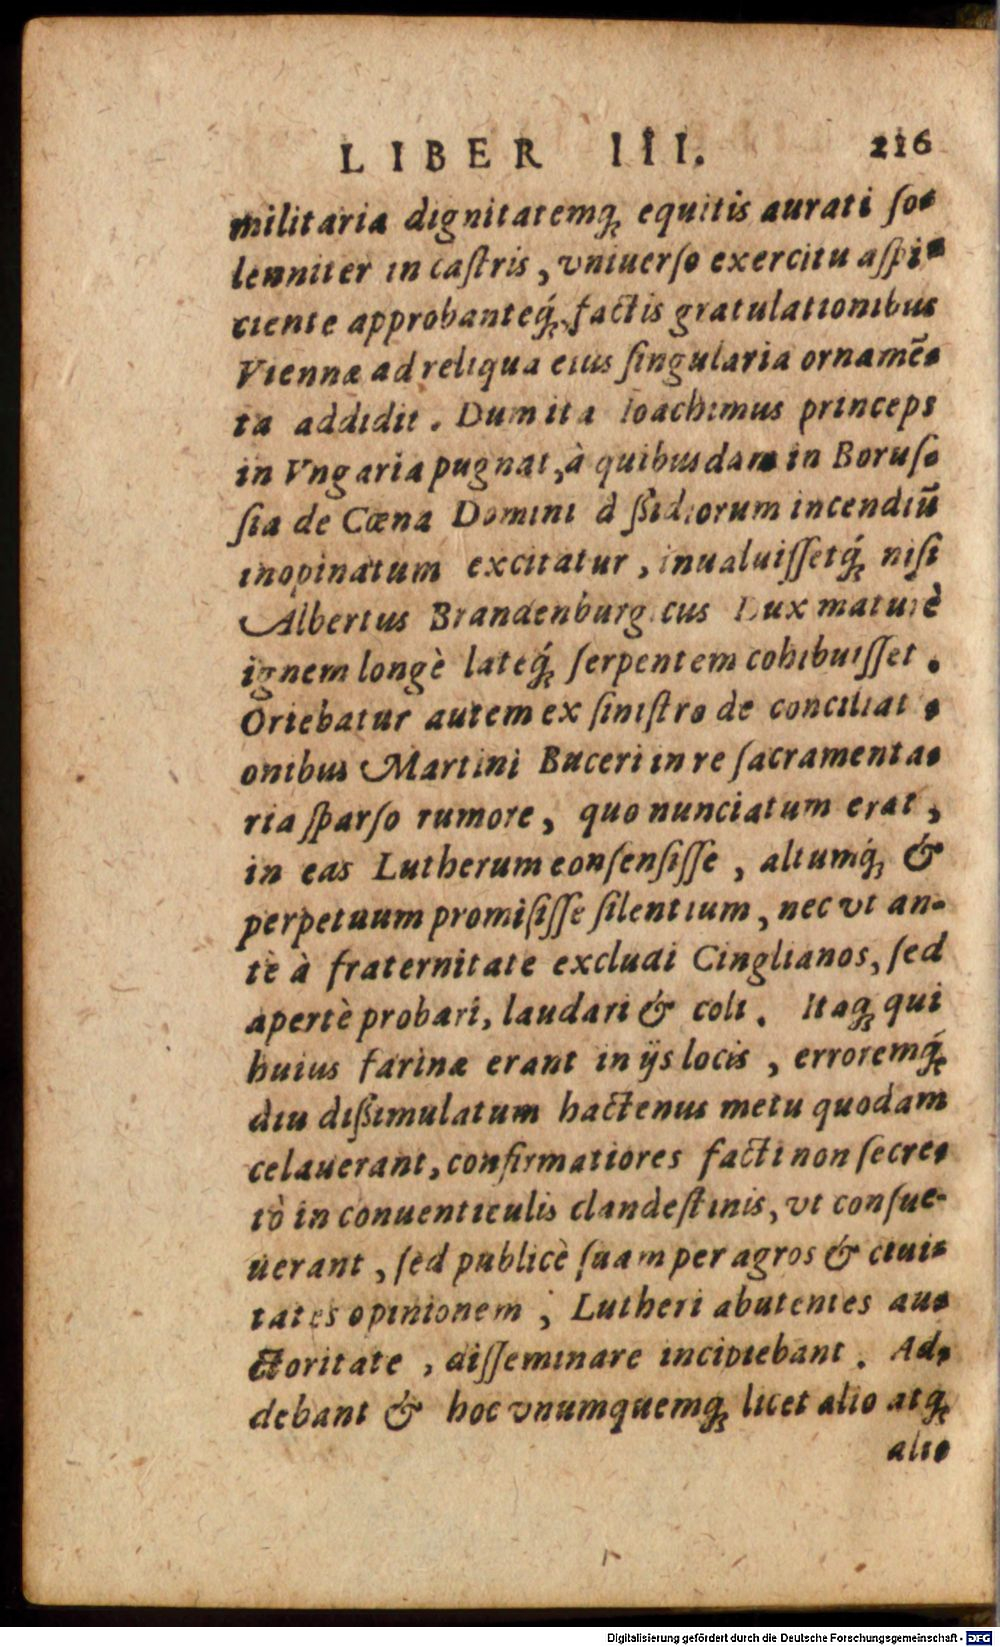 LIBER III. 216
militaria dignitatemq́ꝫ equitis aurati ſo-
lenniter in caſtris, vniuerſo exercitu aſpi-
ciente approbanteq́ꝫ, factis gratulationibus
Viennæ ad reliqua eius ſingularia ornamē-
ta addidit. Dum ita Ioachimus princeps
in Vngaria pugnat, à quibusdam in Boruſ-
ſia de Cœna Domini dißidiorum incendiū
inopinatum excitatur, inualuiſſetq́ꝫ niſi
Albertus Brandenburgicus Dux maturè
ignem longè lateq́ꝫ ſerpentem cohibuiſſet.
Oriebatur autem ex ſiniſtro de conciliati-
onibus Martini Buceri in re ſacramenta-
ria ſparſo rumore, quo nunciatum erat,
in eas Lutherum eonſenſiſſe, altumq́ꝫ &
perpetuum promiſiſſe ſilentium, nec vt an-
tè à fraternitate excludi Cinglianos, ſed
apertè probari, laudari & coli. Itaqꝫ qui
huius farinæ erant in ijs locis, erroremq́ꝫ
diu dißimulatum hactenus metu quodam
celauerant, confirmatiores facti non ſecre-
tò in conuenticulis clandeſtinis, vt conſue-
uerant, ſed publicè ſuam per agros & ciui-
tates opinionem, Lutheri abutentes au-
ctoritate, diſſeminare incipiebant. Ad-
debant & hoc vnumquemqꝫ licet alio atqꝫ
alio
Digitalisierung gefördert durch die Deutsche Forschungsgemeinschaft - DFG